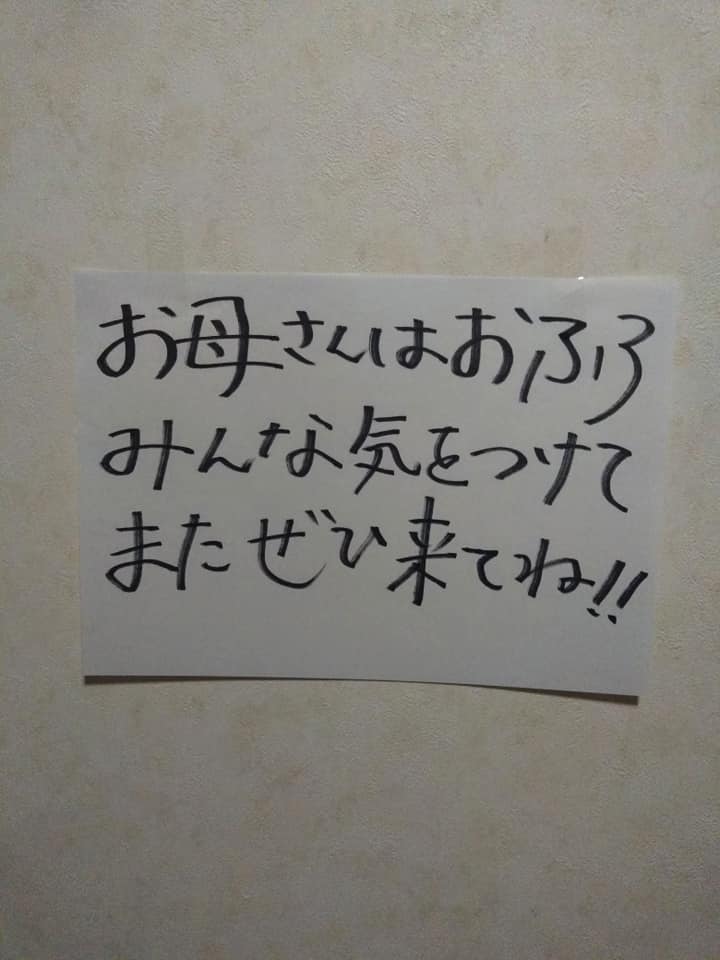 お母さんはおふろ
みんな気をつけて
またぜひ来てね!!